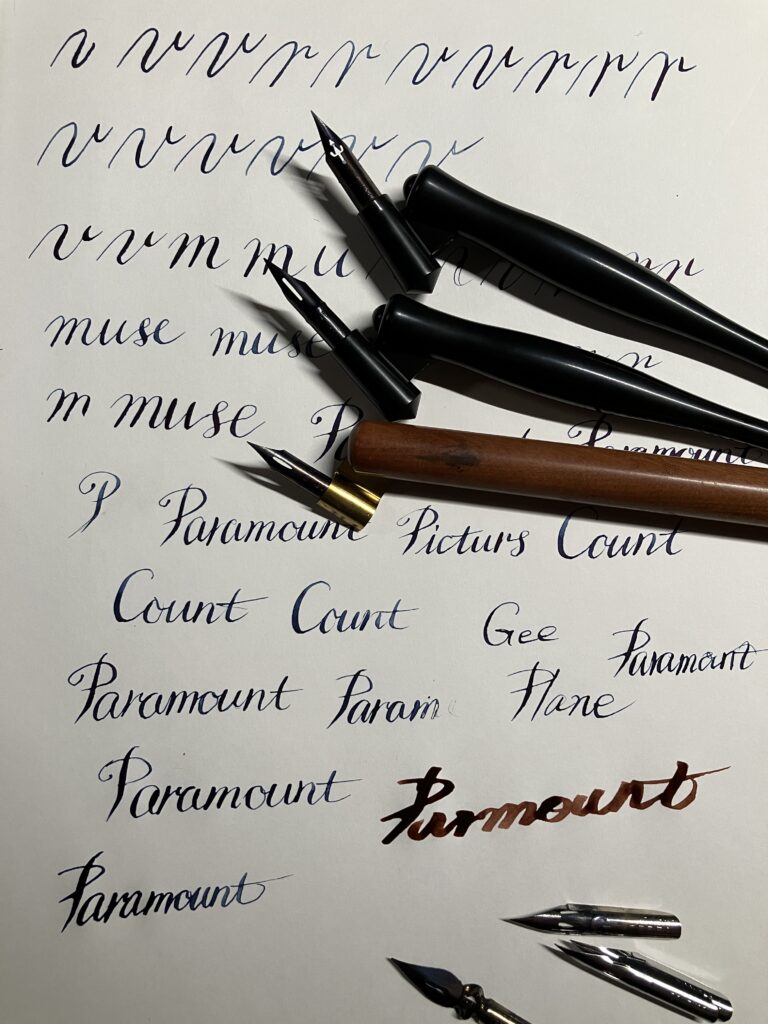 v v v r r v v r r r
v v v v v v
v v m m u r r
muse muse n
m muse P Paramount
P Paramount Picturs Count
Count Count Gee Paramount
Paramount Param Plane
Paramount Parmount
Paramount